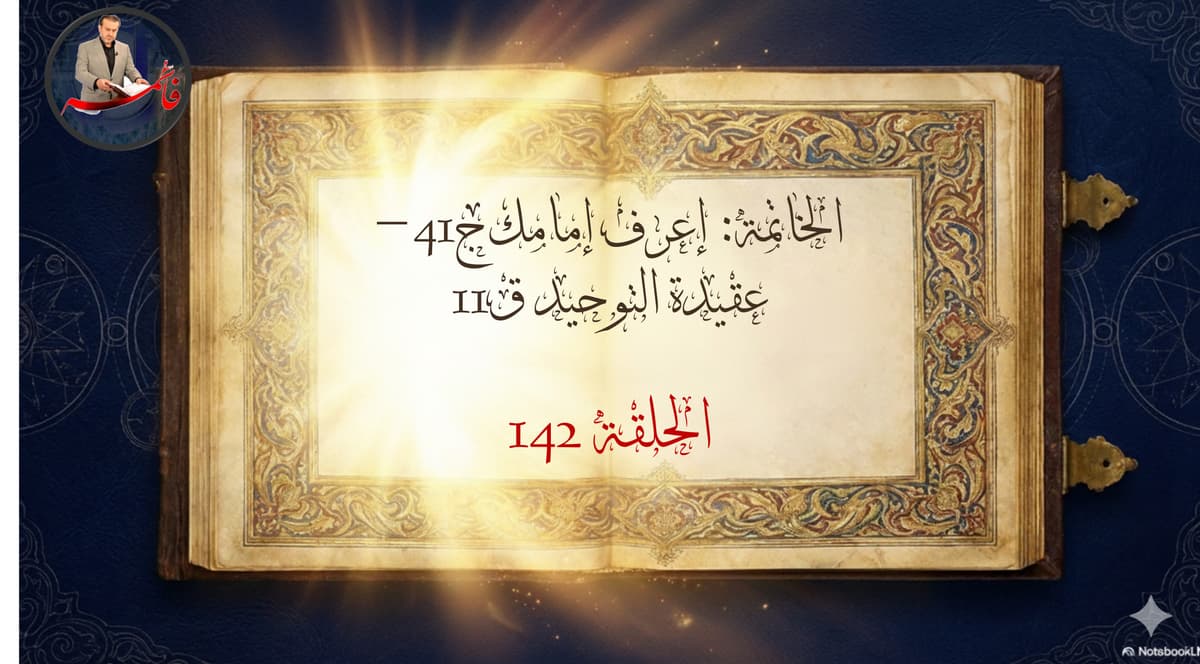 فاطمة
الخاتمة: إعرف إمامك ج41 –
عقيدة التوحيد ق11
الحلقة 142
NotsbookLM